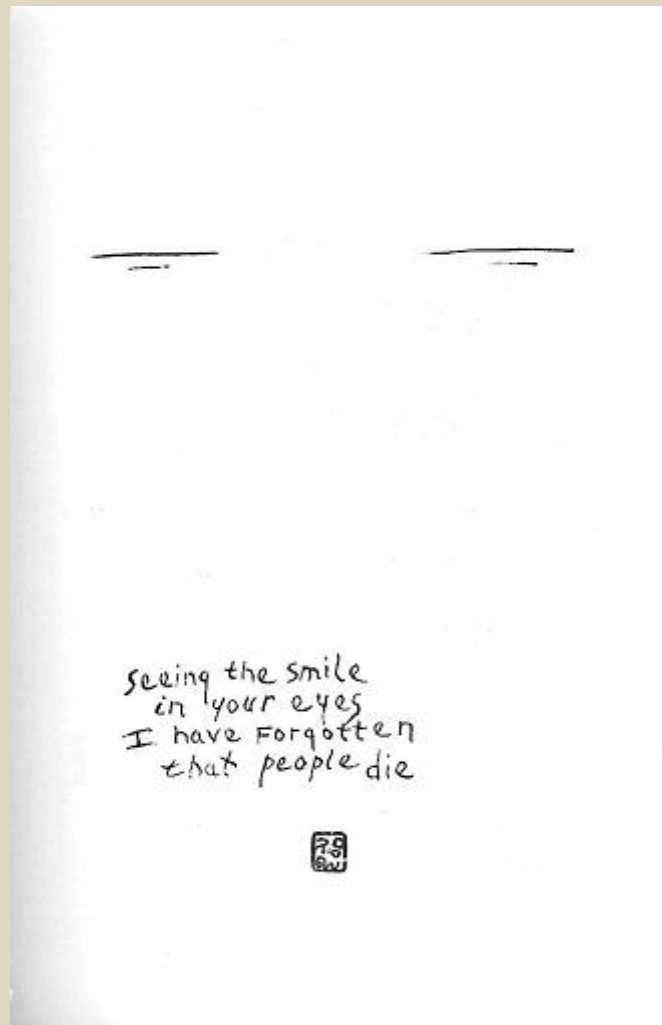 seeing the smile
in your eyes
I have Forgotten
that people die